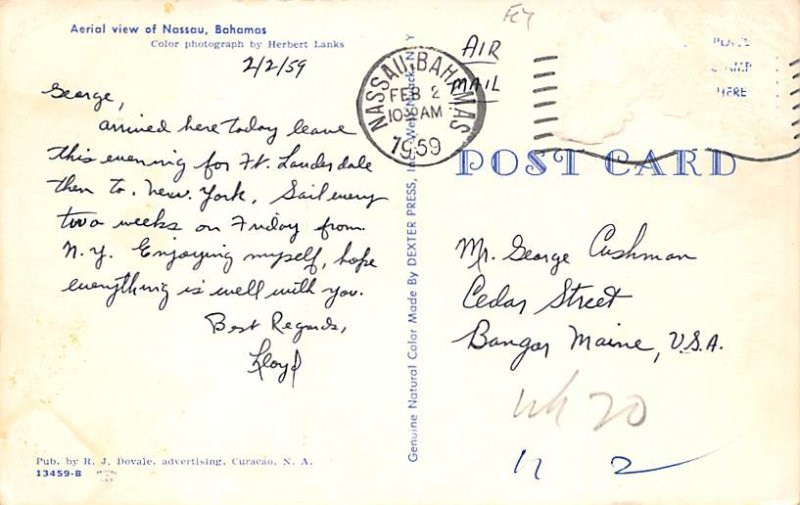 Aerial view of Nassau, Bahamas
Color photograph by Herbert Lanks
2/2/59
George,
arrived here today leave
this evening for Ft. Lauderdale
then to. New. York, Sail every
two weeks on Friday from
N.Y. Enjoying myself, hope
everything is well with you.
Best Regards,
Lloyd
Pub. by R. J. Dovale, advertising, Curacao, N. A.
13459-B
Genuine Natural Color Made By DEXTER PRESS, Inc., West Nyack, N Y
NASSAU, BAHAMAS
FEB 2
1030AM
1959
AIR
MAIL
PLACE
STAMP
HERE
POST CARD
Mr. George Cushman
Cedar Street
Bangor Maine, U.S.A.
20
2